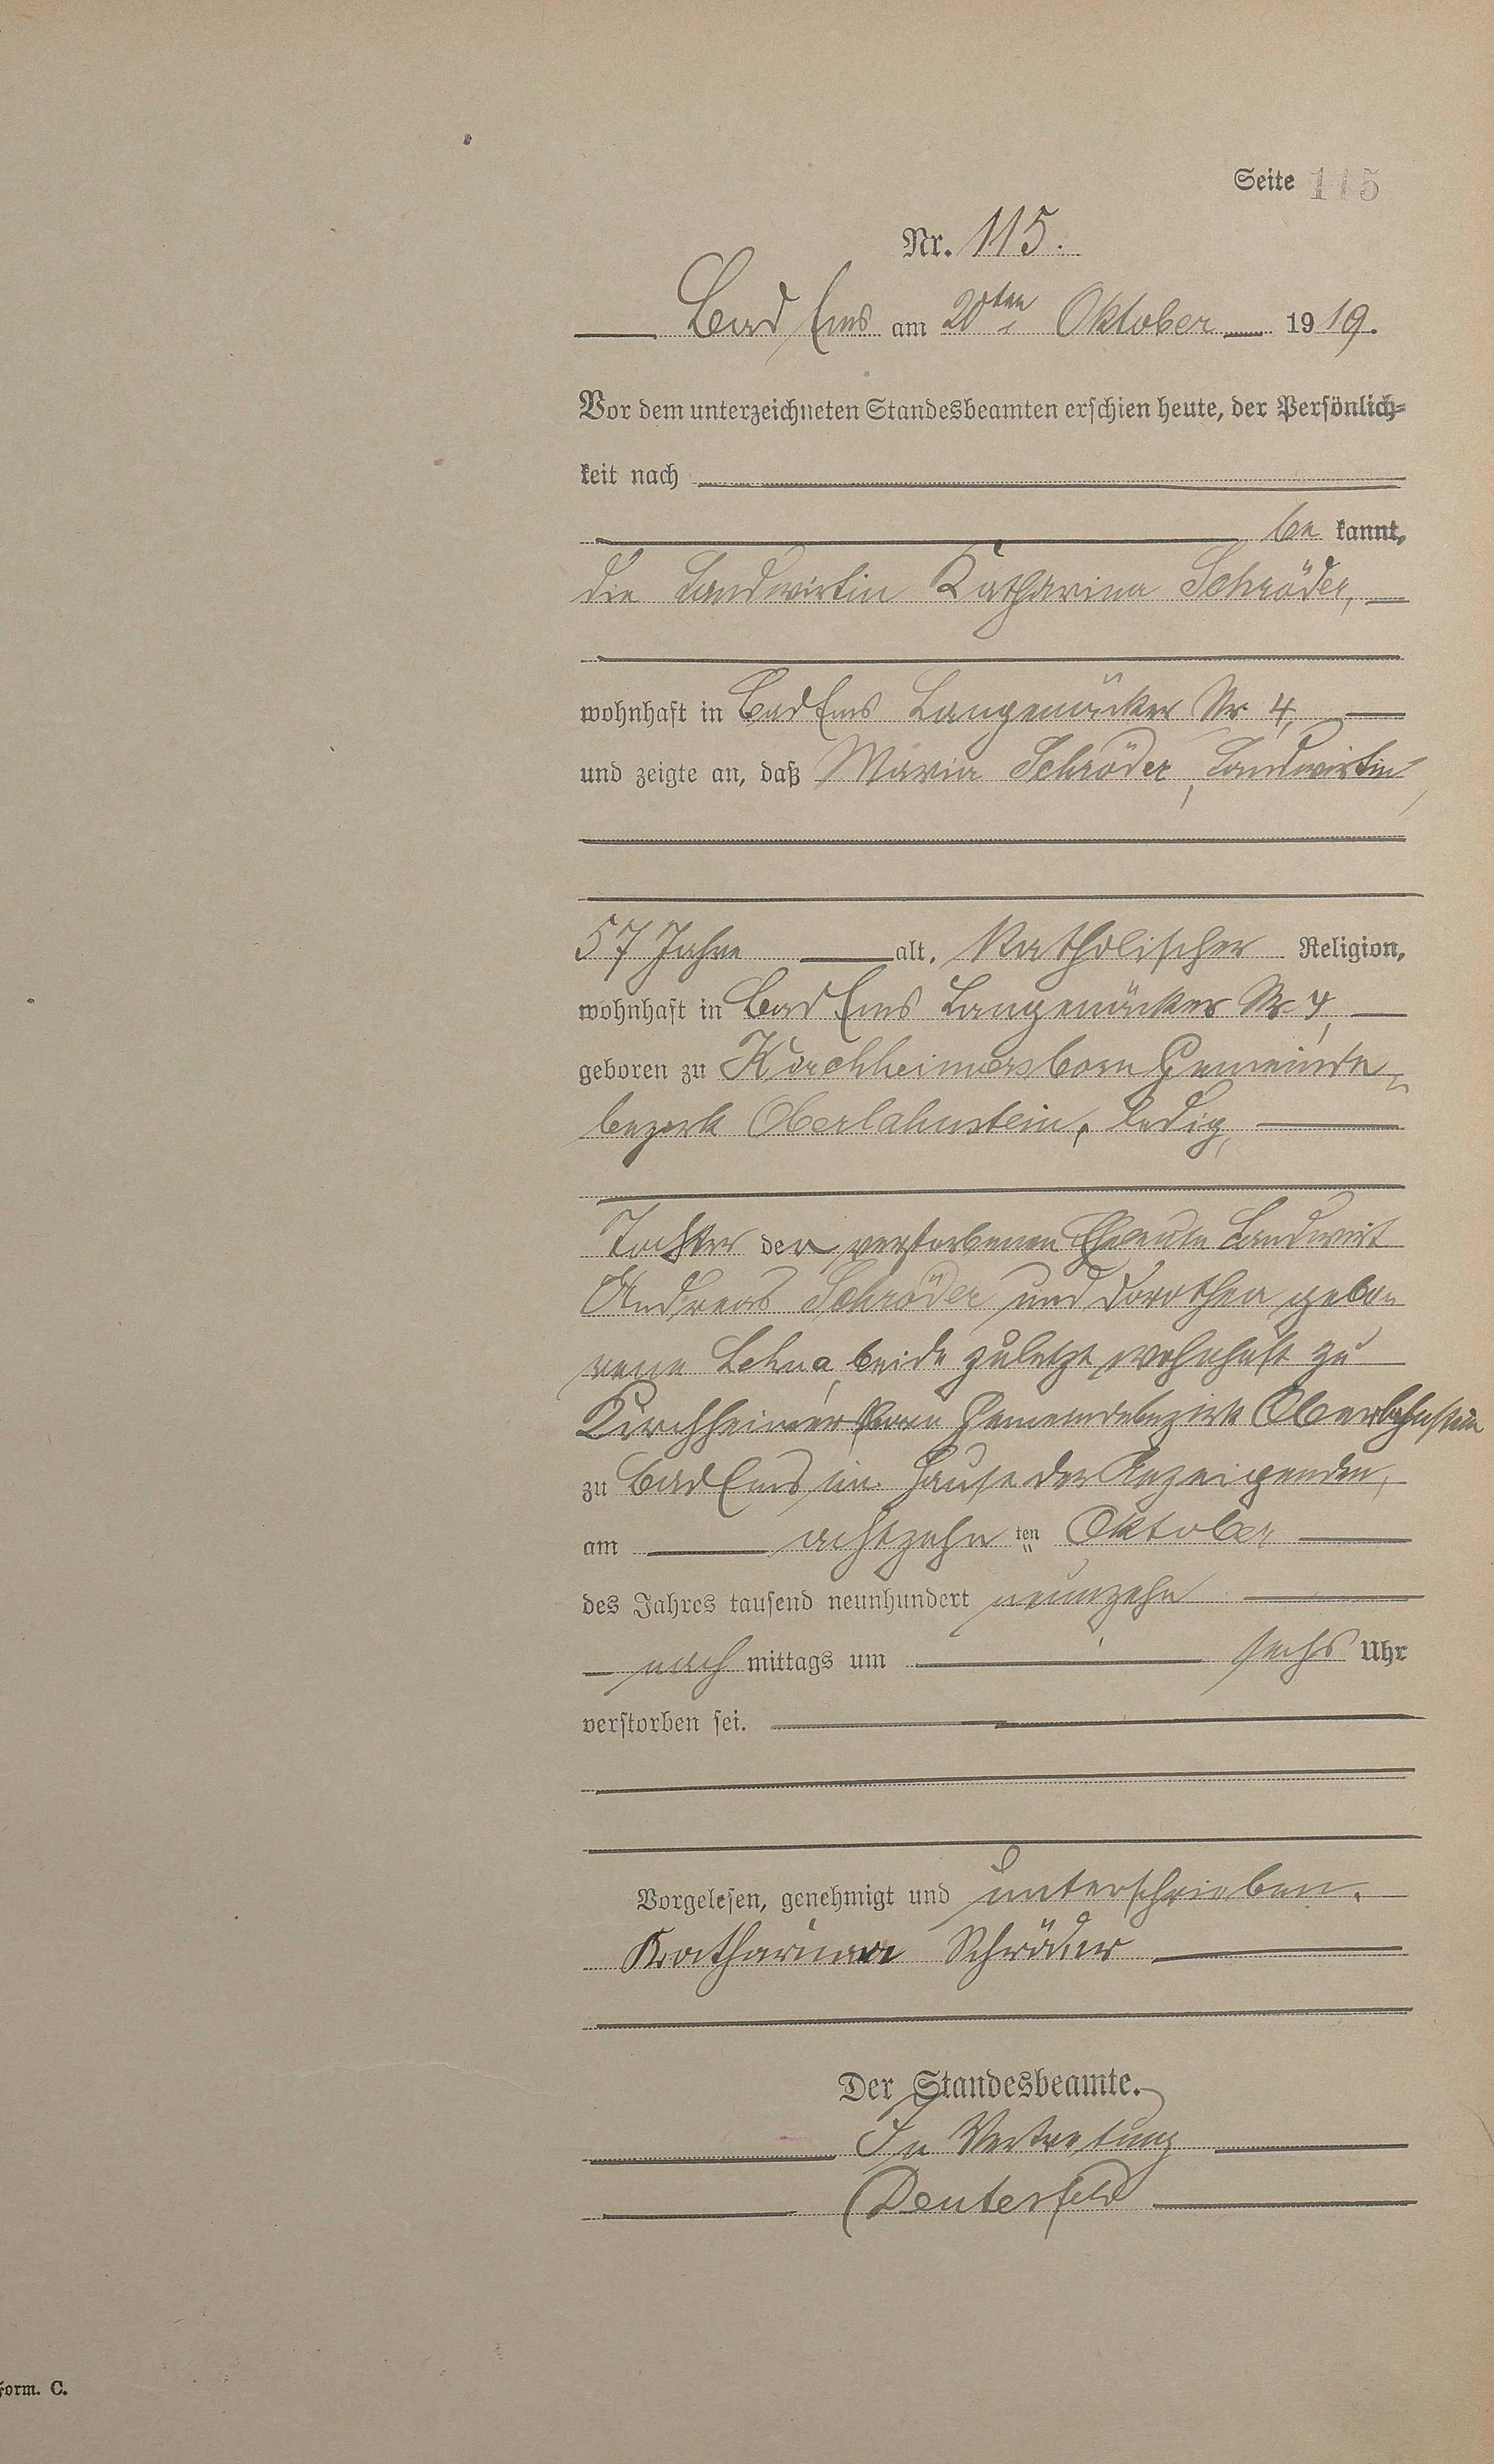 Seite 115
Nr. 115.
Bad Ems am 20ten Oktober 1919.
Vor dem unterzeichneten Standesbeamten erschien heute, der Persönlich-
keit nach
be kannt,
die Landwirtin Katharina Schröder,
wohnhaft in Bad Ems Langenäcker Nr 4,
und zeigte an, daß Maria Schröder, Landwirtin,
57 Jahre alt, Katholischer Religion,
wohnhaft in Bad Ems Langenäcker Nr 4,
geboren zu Kirchheimersborn Gemeinde-
bezirk Oberlahnstein, ledig,
Tochter der verstorbenen Eheleute Landwirt
Andreas Schröder und Dorothea gebo-
rene beide zuletzt wohnhaft zu
Kirchheimersborn Gemeindebezirk Oberlahnstein
zu Bad Ems im Hause der Anzeigenden,
am achtzehn ten Oktober
des Jahres tausend neunhundert neunzehn
nach mittags um sechs Uhr
verstorben sei.
Vorgelesen, genehmigt und unterschrieben.
Katharina Schröder
Der Standesbeamte.
In Vertretung
Deuterfeld
Form. C.